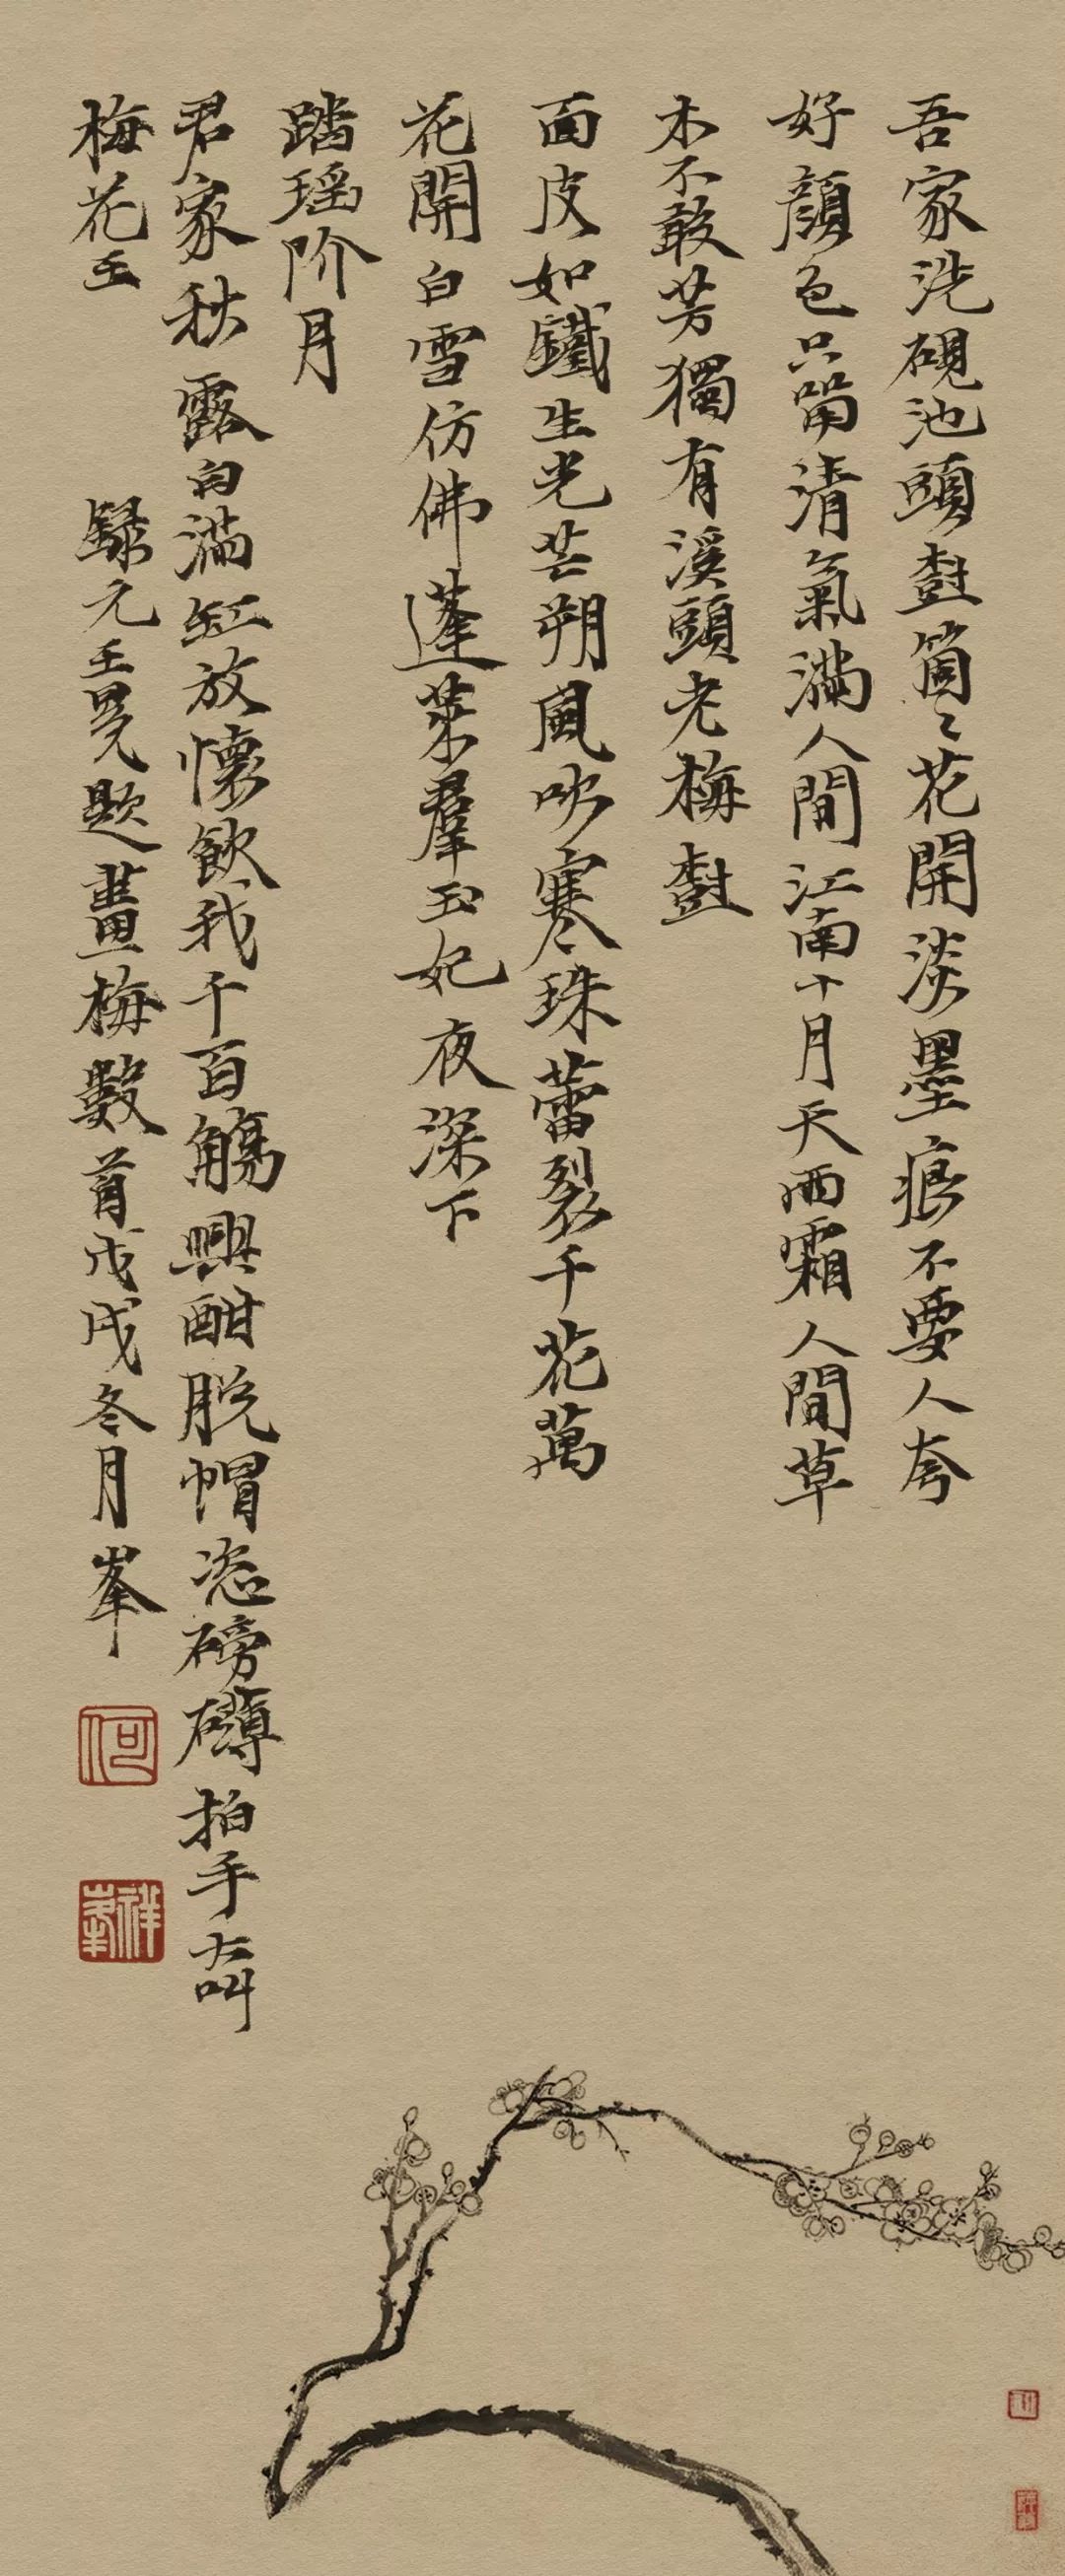 吾家洗硯池頭樹箇々花開淡墨痕不要人夸
好顏色只留清氣滿人間江南十月天雨霜人間草
木不敢芳獨有溪頭老梅樹
面皮如鐵生光芒朔風吹寒珠蕾裂千花萬
花開白雪仿佛蓬萊羣玉妃夜深下
踏瑶阶月
君家秋露白滿缸放懷飲我千百觴興酣脫帽恣磅礴拍手大叫
梅花王
錄元王冕題畫梅數首戊戌冬月峯
何
祥峯